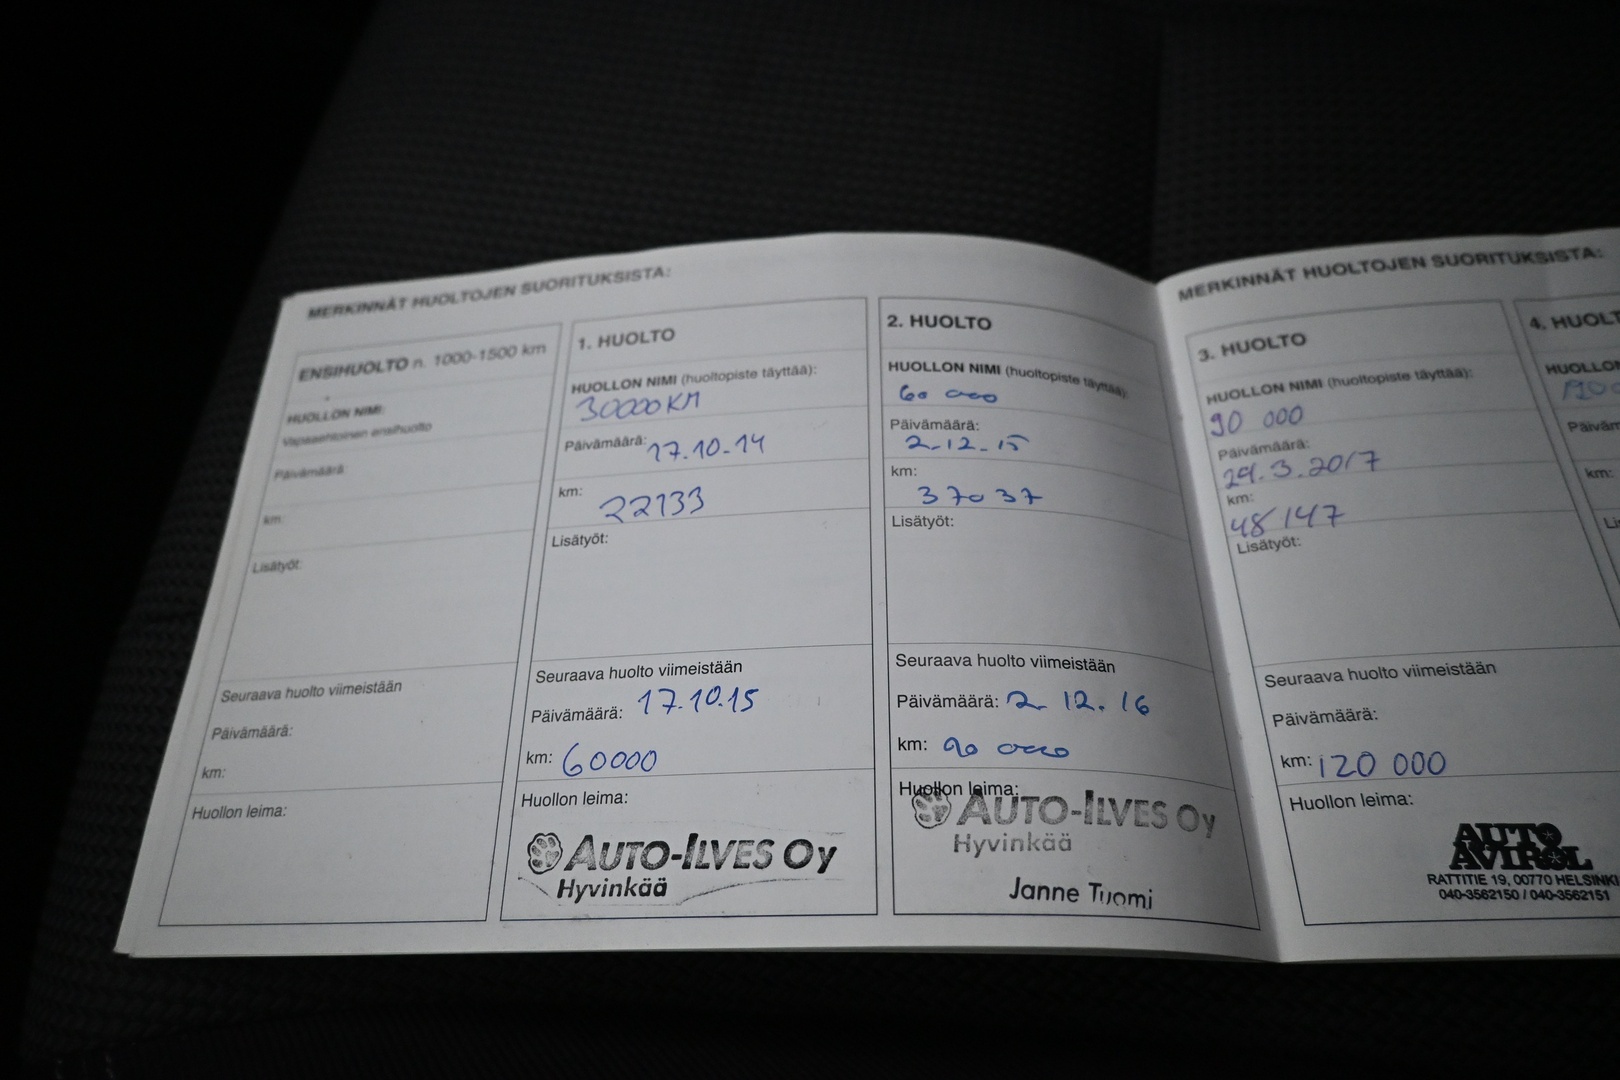 MERKINNÄT HUOLTOJEN SUORITUKSISTA:
ENSIHUOLTO n. 1000-1500 km
HUOLLON NIMI:
Vapaaehtoinen ensihuolto
Päivämäärä:
km:
Lisätyöt:
Seuraava huolto viimeistään
Päivämäärä:
km:
Huollon leima:
1. HUOLTO
HUOLLON NIMI (huoltopiste täyttää):
30000 KM
Päivämäärä: 17.10.14
km:
22133
Lisätyöt:
Seuraava huolto viimeistään
Päivämäärä: 17.10.15
km: 60000
Huollon leima:
AUTO-ILVES OY
Hyvinkää
2. HUOLTO
HUOLLON NIMI (huoltopiste täyttää):
60 000
Päivämäärä:
2.12.15
km:
37037
Lisätyöt:
Seuraava huolto viimeistään
Päivämäärä: 2.12.16
km: 90 000
Huollon leima:
AUTO-ILVES OY
Hyvinkää
Janne Tuomi
MERKINNÄT HUOLTOJEN SUORITUKSISTA:
3. HUOLTO
HUOLLON NIMI (huoltopiste täyttää):
90 000
Päivämäärä:
29.3.2017
km:
48147
Lisätyöt:
Seuraava huolto viimeistään
Päivämäärä:
km: 120 000
Huollon leima:
AUTO
AVIROL
RATTITIE 19, 00770 HELSINKI
040-3562150 / 040-3562151
4. HUOLT
HUOLLO
Päiväm
km: